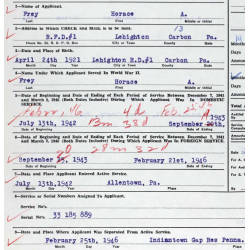 1.—Name of Applicant.
Frey Horace A.
Last First Middle or Initial
2.—Address to Which CHECK and MAIL is to be Sent. 13
R.F.D.#1 Lehighton Carbon Pa.
House No. Street City or Town County State
3.—Date and Place of Birth.
April 24th 1921 Lehighton R.F.D.#1 Carbon Pa.
City or Town County State
4.—Name Under Which Applicant Served In World War II.
Frey Horace A.
Last First Middle or Initial
5.—Date of Beginning and Date of Ending of Each Period of Service Between December 7, 1941
and March 2, 1946 (Both Dates Inclusive) During Which Applicant Was In DOMESTIC
SERVICE.
July 13th, 1942 September 1943
6.—Date of Beginning and Date of Ending of Each Period of Service Between December 7, 1941
and March 2, 1946 (Both Dates Inclusive) During Which Applicant Was In FOREIGN
SERVICE.
September 1943 February 21st, 1946
7.—Date and Place Applicant Entered Active Service.
July 13th, 1942 Allentown, Pa.
Date Place
8.—Service or Serial Numbers Assigned To Applicant.
Service No.
33 185 889
Serial No.
9.—Date and Place Where Applicant Was Separated From Active Service.
February 25th, 1946 Indiantown Gap Penna